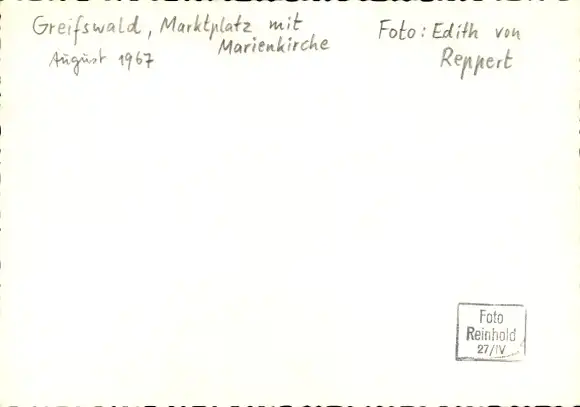 Greifswald, Marktplatz mit
Marienkirche
August 1967
Foto: Edith von
Reppert
Foto
Reinhold
27/IV